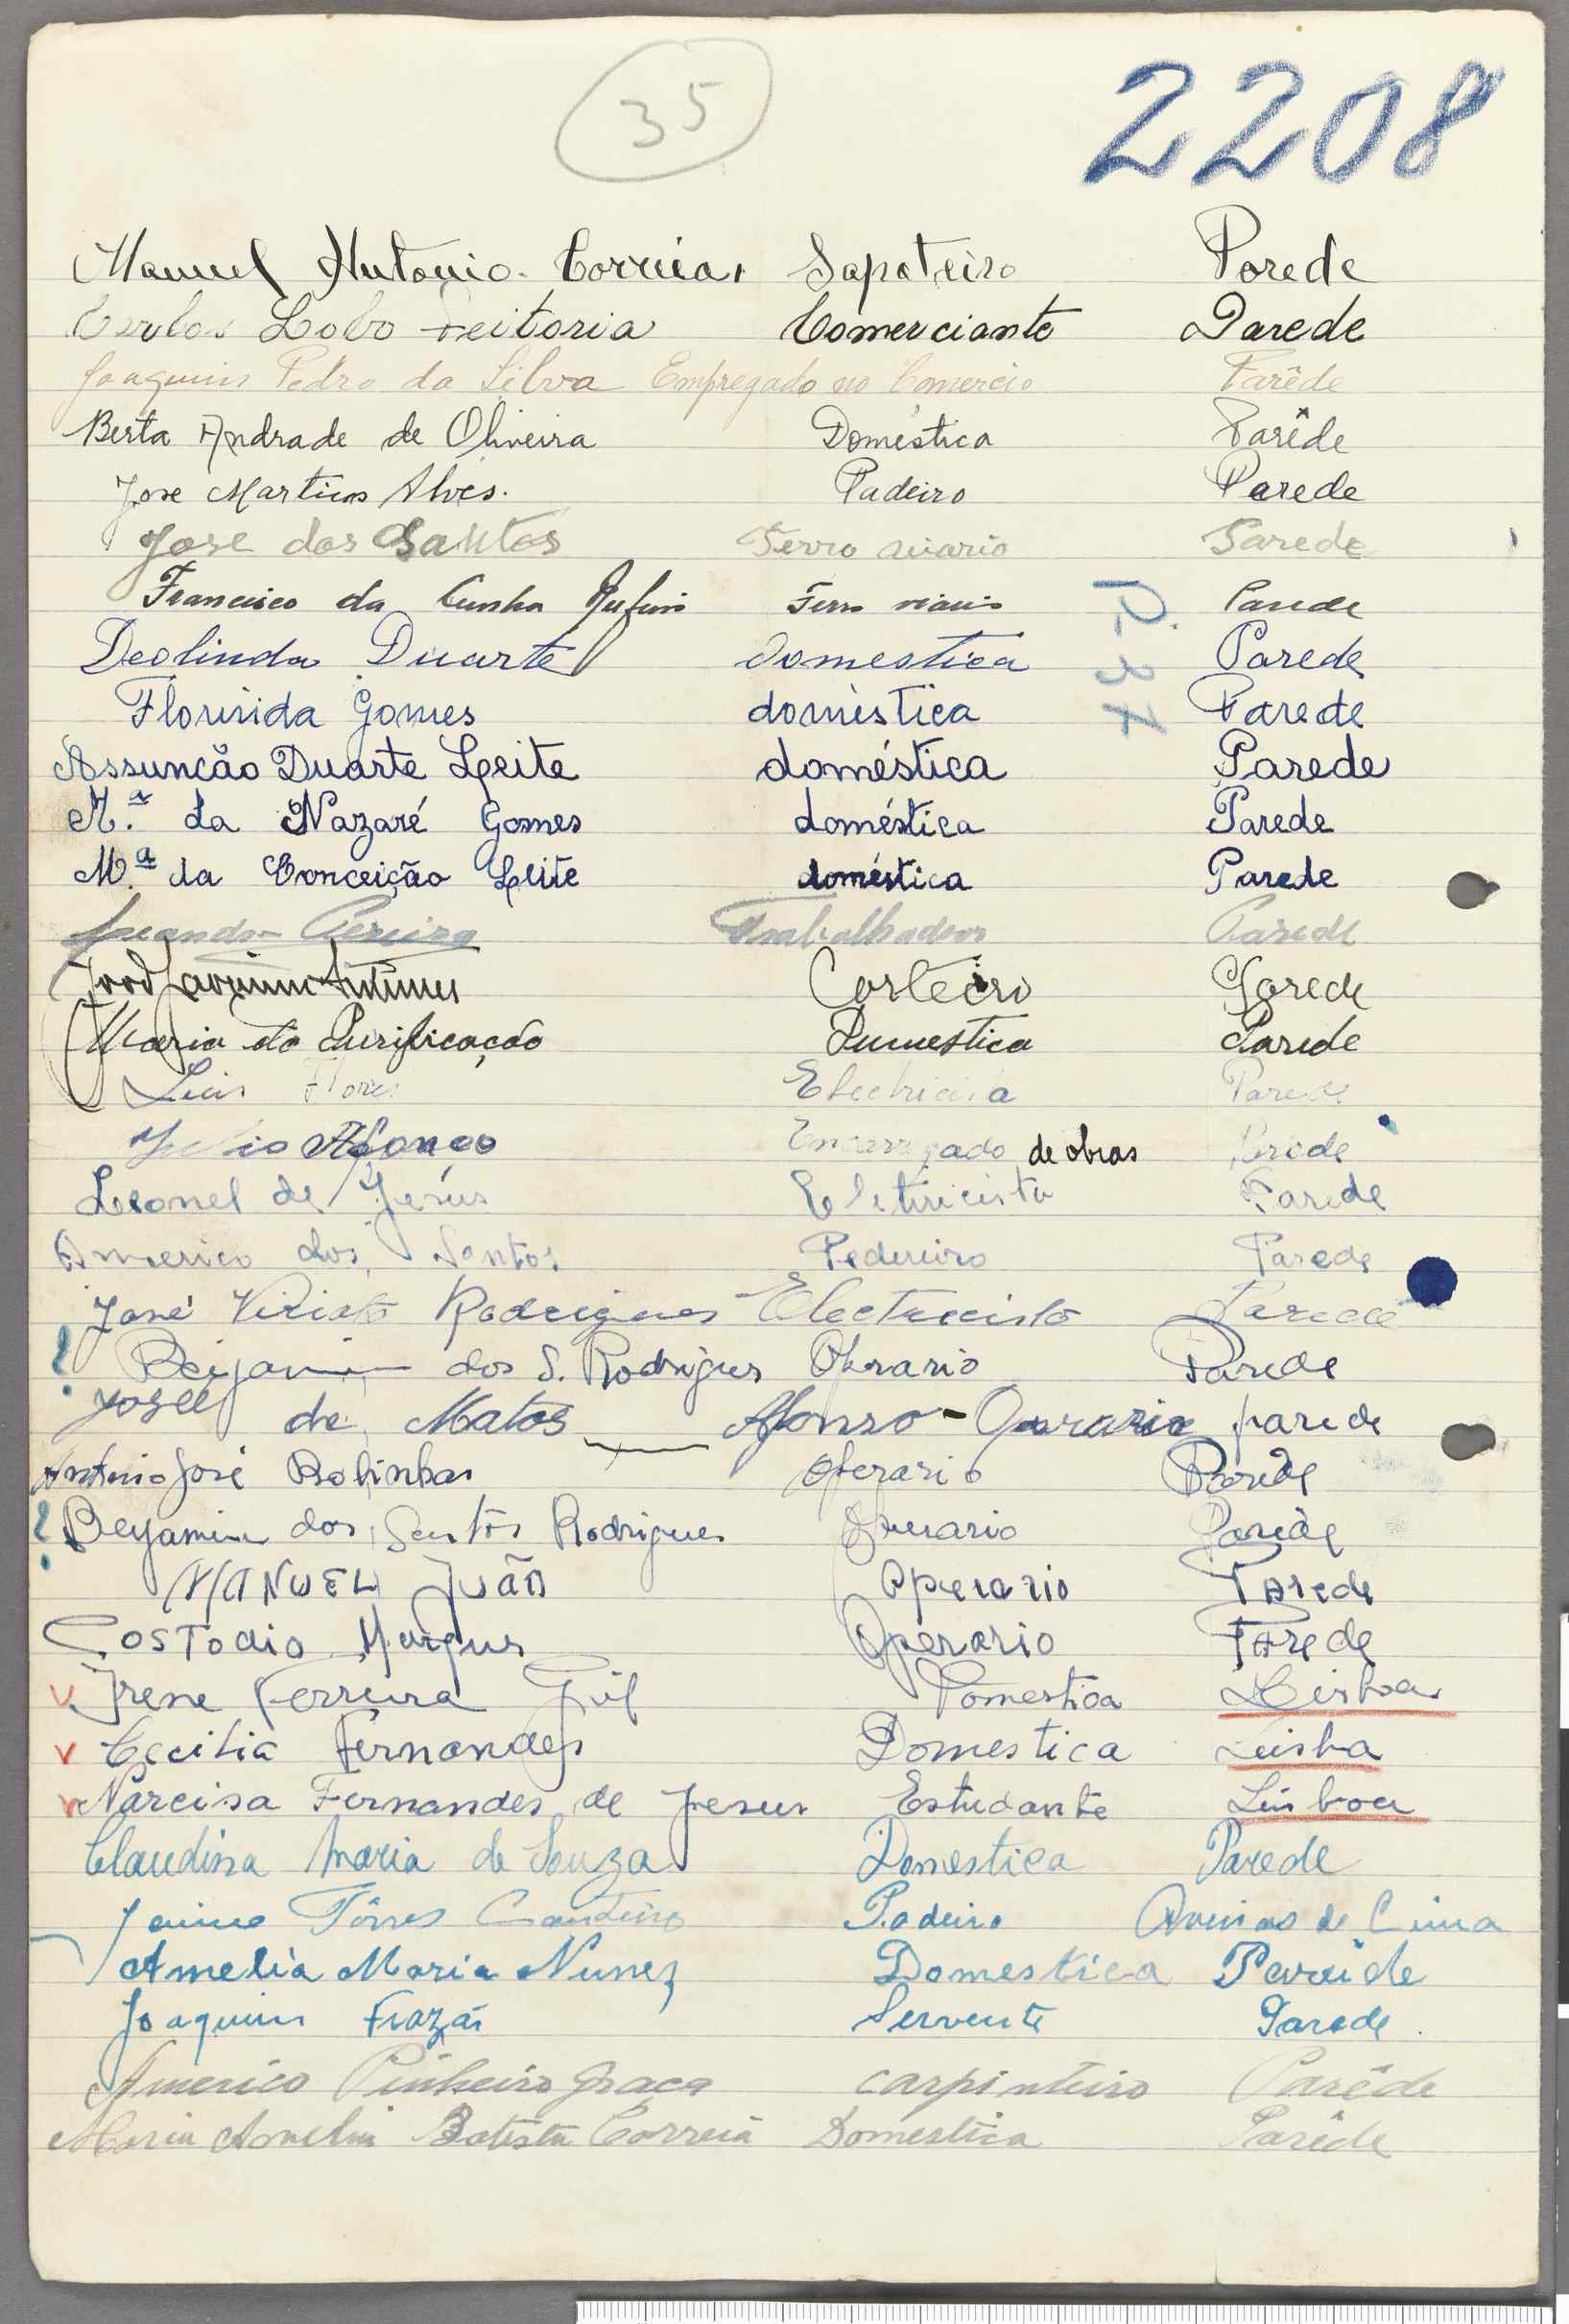 35
2208
Manuel Antonio Correia Sapateiro Parede
Carlos Lobo Feitoria Comerciante Parede
Joaquim Pedro da Silva Empregado no Comercio Parêde
Berta Andrade de Oliveira Doméstica Parêde
Jose Martins Alves. Padeiro Parede
Jose dos Santos Ferro viario Parede
Francisco da Cunha Ferro viario Parede
Deolinda Duarte domestica Parede
R. 37
Florinida Gomes doméstica Parede
Assuncão Duarte Leite doméstica Parede
M.ª da Nazaré Gomes doméstica Parede
M.ª da Conceição Leite doméstica Parede
Leandro Pereira Trabalhador Parede
Antunes Corteiro Parede
Maria da Purificação Dumestica Parede
Luis Flores Electricista Parede
Julio Afonço Encarregado de obras Parede
Leonel de Jesús Eletricista Parede
Americo dos Santos Pedreiro Parede
José Viriato Rodrigues Electricista Parede
? Benjamin dos S. Rodrigues Operario Parede
José de Matos Afonso - Operario parede
Antonio José Bolinhas Operario Parede
? Benjamin dos Santos Rodrigues Operario Parede
MANUEL Juão Operario Parede
Costodio Operario Parede
v Irene Ferreira Gil Domestica Lisboa
v Cecilia Fernandes Domestica Lisboa
v Narcisa Fernandes de Jesus Estudante Lisboa
Claudina Maria de Souza Domestica Parede
Jaime Tôrres Padeiro de Cima
Amelia Maria Nunez Domestica Pareide
Joaquim Frazão Servente Parede
Americo Pinheiro Graça carpinteiro Parêde
Maria Amelia Batista Correia Domestica Parêde